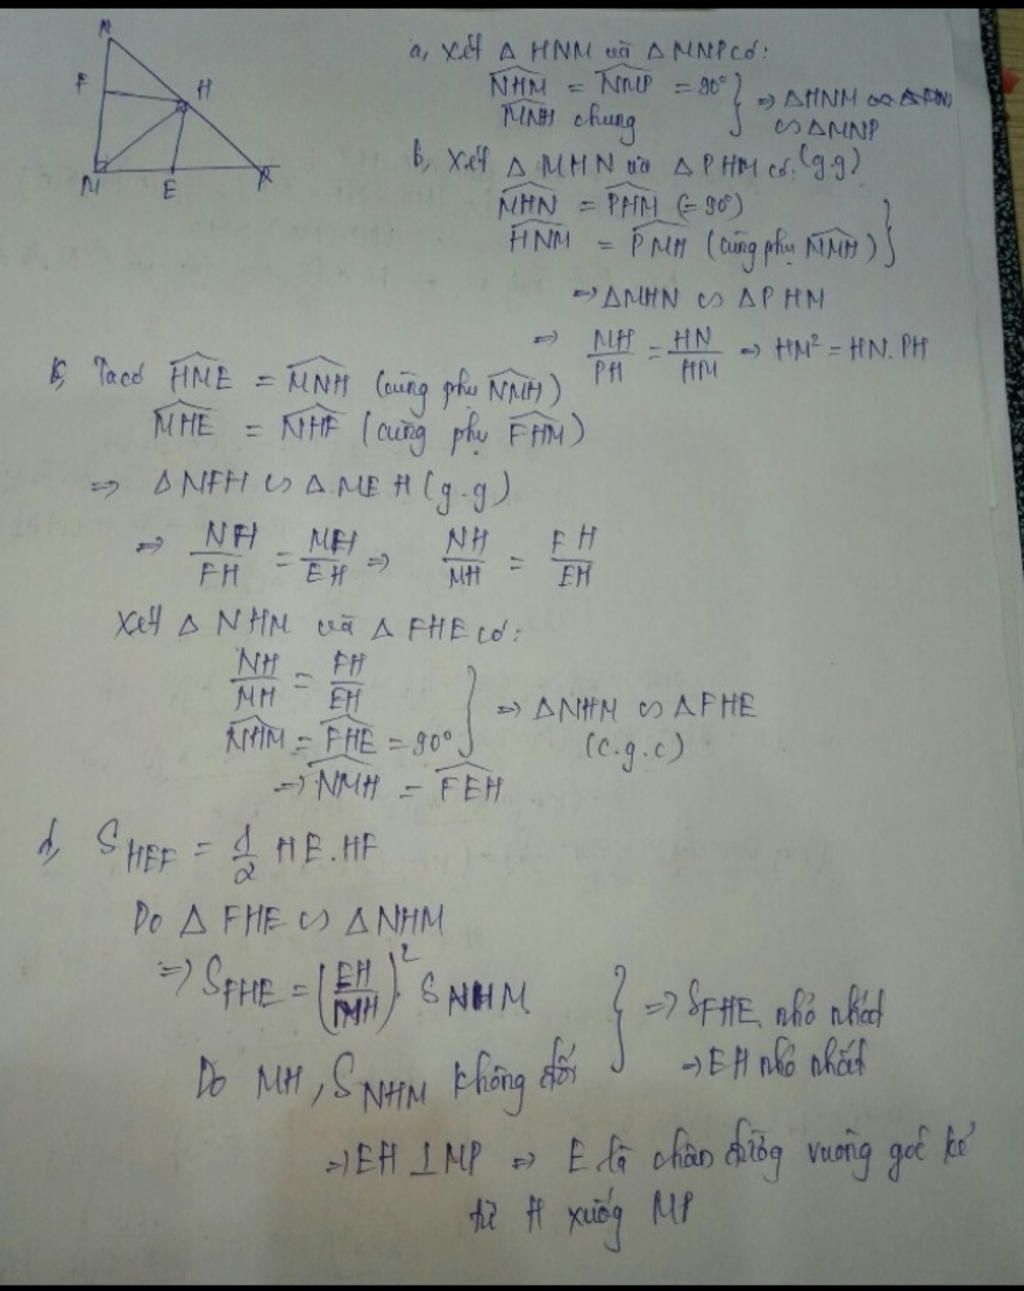 N
F
H
M
E
P
a, Xét Δ HNM và Δ MNP có:
∠NHM = ∠NMP = 90°
∠MNH chung } ⇒ ΔHNM
∽ ΔMNP
(g.g)
b, Xét Δ MHN và Δ PHM có:
∠MHN = ∠PHM (= 90°)
∠HNM = ∠PMH (cùng phụ ∠NMH) }
⇒ ΔMHN ∽ ΔPHM
⇒ MH/PH = HN/HM ⇒ HM² = HN.PH
c, Ta có ∠HME = ∠MNH (cùng phụ ∠NMH)
∠MHE = ∠NHF (cùng phụ ∠FHM)
⇒ Δ NFH ∽ Δ MEH (g.g)
⇒ NH/FH = MH/EH ⇒ NH/MH = FH/EH
Xét Δ NHM và Δ FHE có:
NH/MH = FH/EH
∠NHM = ∠FHE = 90° } ⇒ ΔNHM ∽ ΔFHE
(c.g.c)
⇒ ∠NMH = ∠FEH
d, S_HEF = 1/2 HE.HF
Do Δ FHE ∽ ΔNHM
⇒ S_FHE = (EH/MH)². S_NHM
Do MH, S_NHM không đổi } ⇒ S_FHE nhỏ nhất
⇒ EH nhỏ nhất
⇒ EH ⊥ MP ⇒ E là chân đường vuông góc kẻ
từ H xuống MP